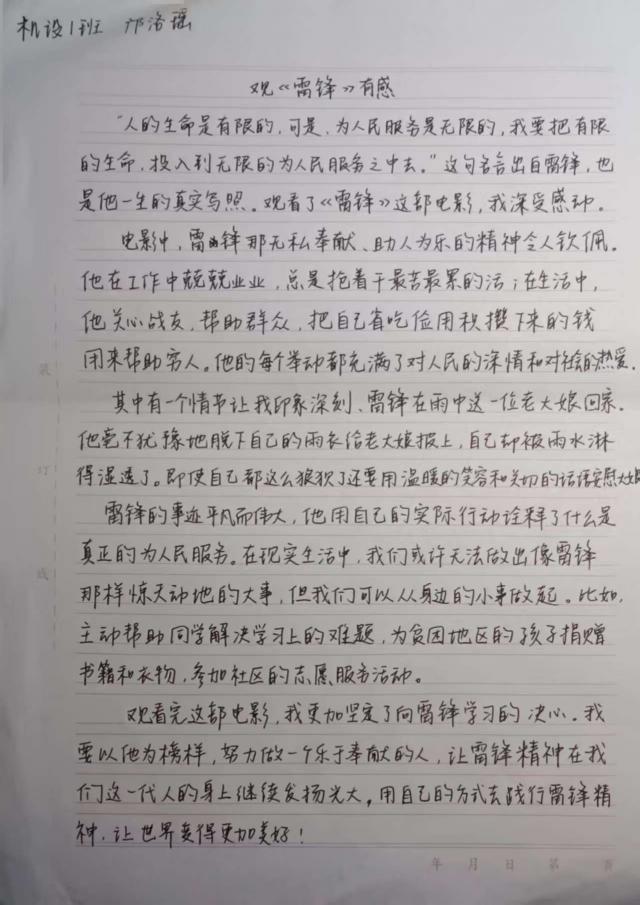 机设1班 邝洛瑶
观《雷锋》有感
"人的生命是有限的,可是,为人民服务是无限的,我要把有限
的生命,投入到无限的为人民服务之中去。"这句名言出自雷锋,也
是他一生的真实写照。观看了《雷锋》这部电影,我深受感动。
电影中,雷锋那无私奉献、助人为乐的精神令人钦佩。
他在工作中兢兢业业,总是抢着干最苦最累的活;在生活中,
他关心战友,帮助群众,把自己省吃俭用积攒下来的钱
团来帮助穷人。他的每个举动都充满了对人民的深情和对社会的热爱.
其中有一个情节让我印象深刻、雷锋在雨中送一位老大娘回家.
他毫不犹豫地脱下自己的雨衣给老大娘披上,自己却被雨水淋
得湿透了。即使自己都这么狼狈了还要用温暖的笑容和关切的话语安慰大娘
雷锋的事迹平凡而伟大,他用自己的实际行动诠释了什么是
真正的为人民服务。在现实生活中,我们或许无法做出像雷锋
那样惊天动地的大事,但我们可以从身边的小事做起。比如,
主动帮助同学解决学习上的难题,为贫困地区的孩子捐赠
书籍和衣物,参加社区的志愿服务活动。
观看完这部电影,我更加坚定了向雷锋学习的决心。我
要以他为榜样,努力做一个乐于奉献的人,让雷锋精神在我
们这一代人的身上继续发扬光大。用自己的方式去践行雷锋精
神,让世界变得更加美好!
装
订
线
年 月 日 第 页